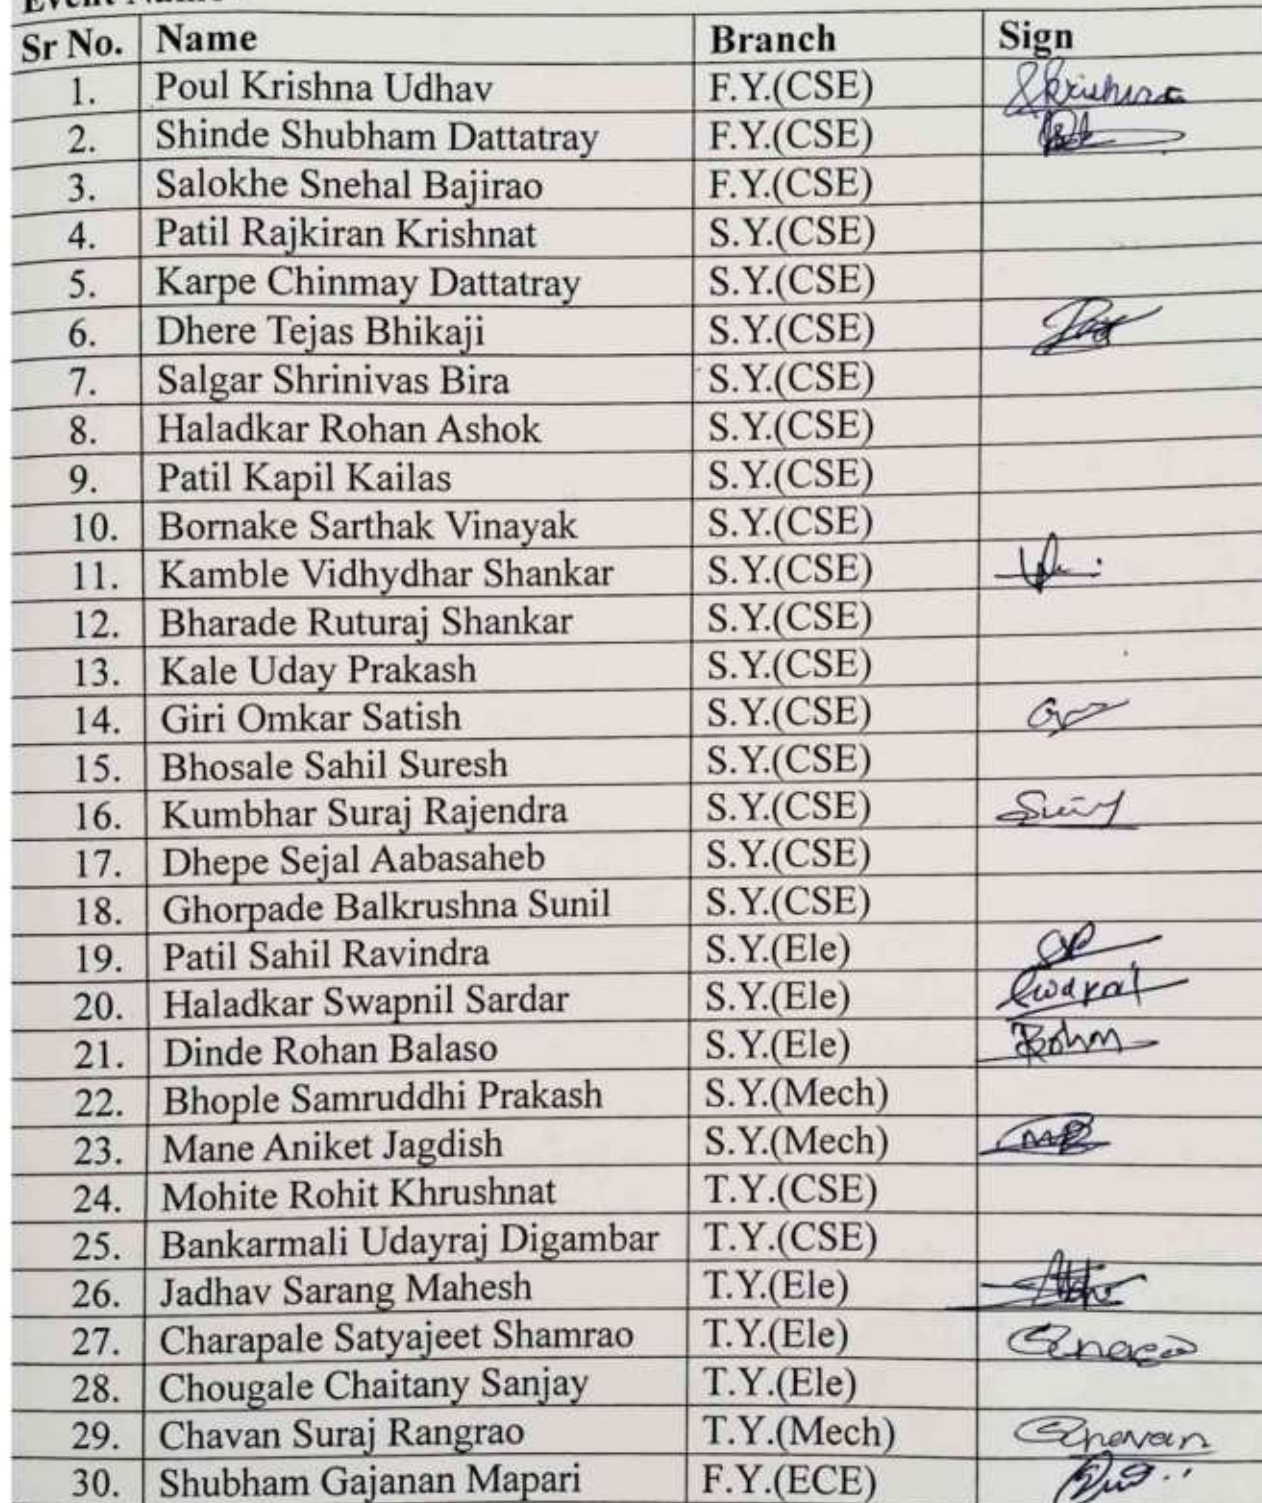 Sr No. Name Branch Sign
1. Poul Krishna Udhav F.Y.(CSE) Krishna
2. Shinde Shubham Dattatray F.Y.(CSE)
3. Salokhe Snehal Bajirao F.Y.(CSE)
4. Patil Rajkiran Krishnat S.Y.(CSE)
5. Karpe Chinmay Dattatray S.Y.(CSE)
6. Dhere Tejas Bhikaji S.Y.(CSE)
7. Salgar Shrinivas Bira S.Y.(CSE)
8. Haladkar Rohan Ashok S.Y.(CSE)
9. Patil Kapil Kailas S.Y.(CSE)
10. Bornake Sarthak Vinayak S.Y.(CSE)
11. Kamble Vidhydhar Shankar S.Y.(CSE)
12. Bharade Ruturaj Shankar S.Y.(CSE)
13. Kale Uday Prakash S.Y.(CSE)
14. Giri Omkar Satish S.Y.(CSE)
15. Bhosale Sahil Suresh S.Y.(CSE)
16. Kumbhar Suraj Rajendra S.Y.(CSE)
17. Dhepe Sejal Aabasaheb S.Y.(CSE)
18. Ghorpade Balkrushna Sunil S.Y.(CSE)
19. Patil Sahil Ravindra S.Y.(Ele)
20. Haladkar Swapnil Sardar S.Y.(Ele)
21. Dinde Rohan Balaso S.Y.(Ele) Rohan
22. Bhople Samruddhi Prakash S.Y.(Mech)
23. Mane Aniket Jagdish S.Y.(Mech)
24. Mohite Rohit Khrushnat T.Y.(CSE)
25. Bankarmali Udayraj Digambar T.Y.(CSE)
26. Jadhav Sarang Mahesh T.Y.(Ele)
27. Charapale Satyajeet Shamrao T.Y.(Ele)
28. Chougale Chaitany Sanjay T.Y.(Ele)
29. Chavan Suraj Rangrao T.Y.(Mech) Chavan
30. Shubham Gajanan Mapari F.Y.(ECE)